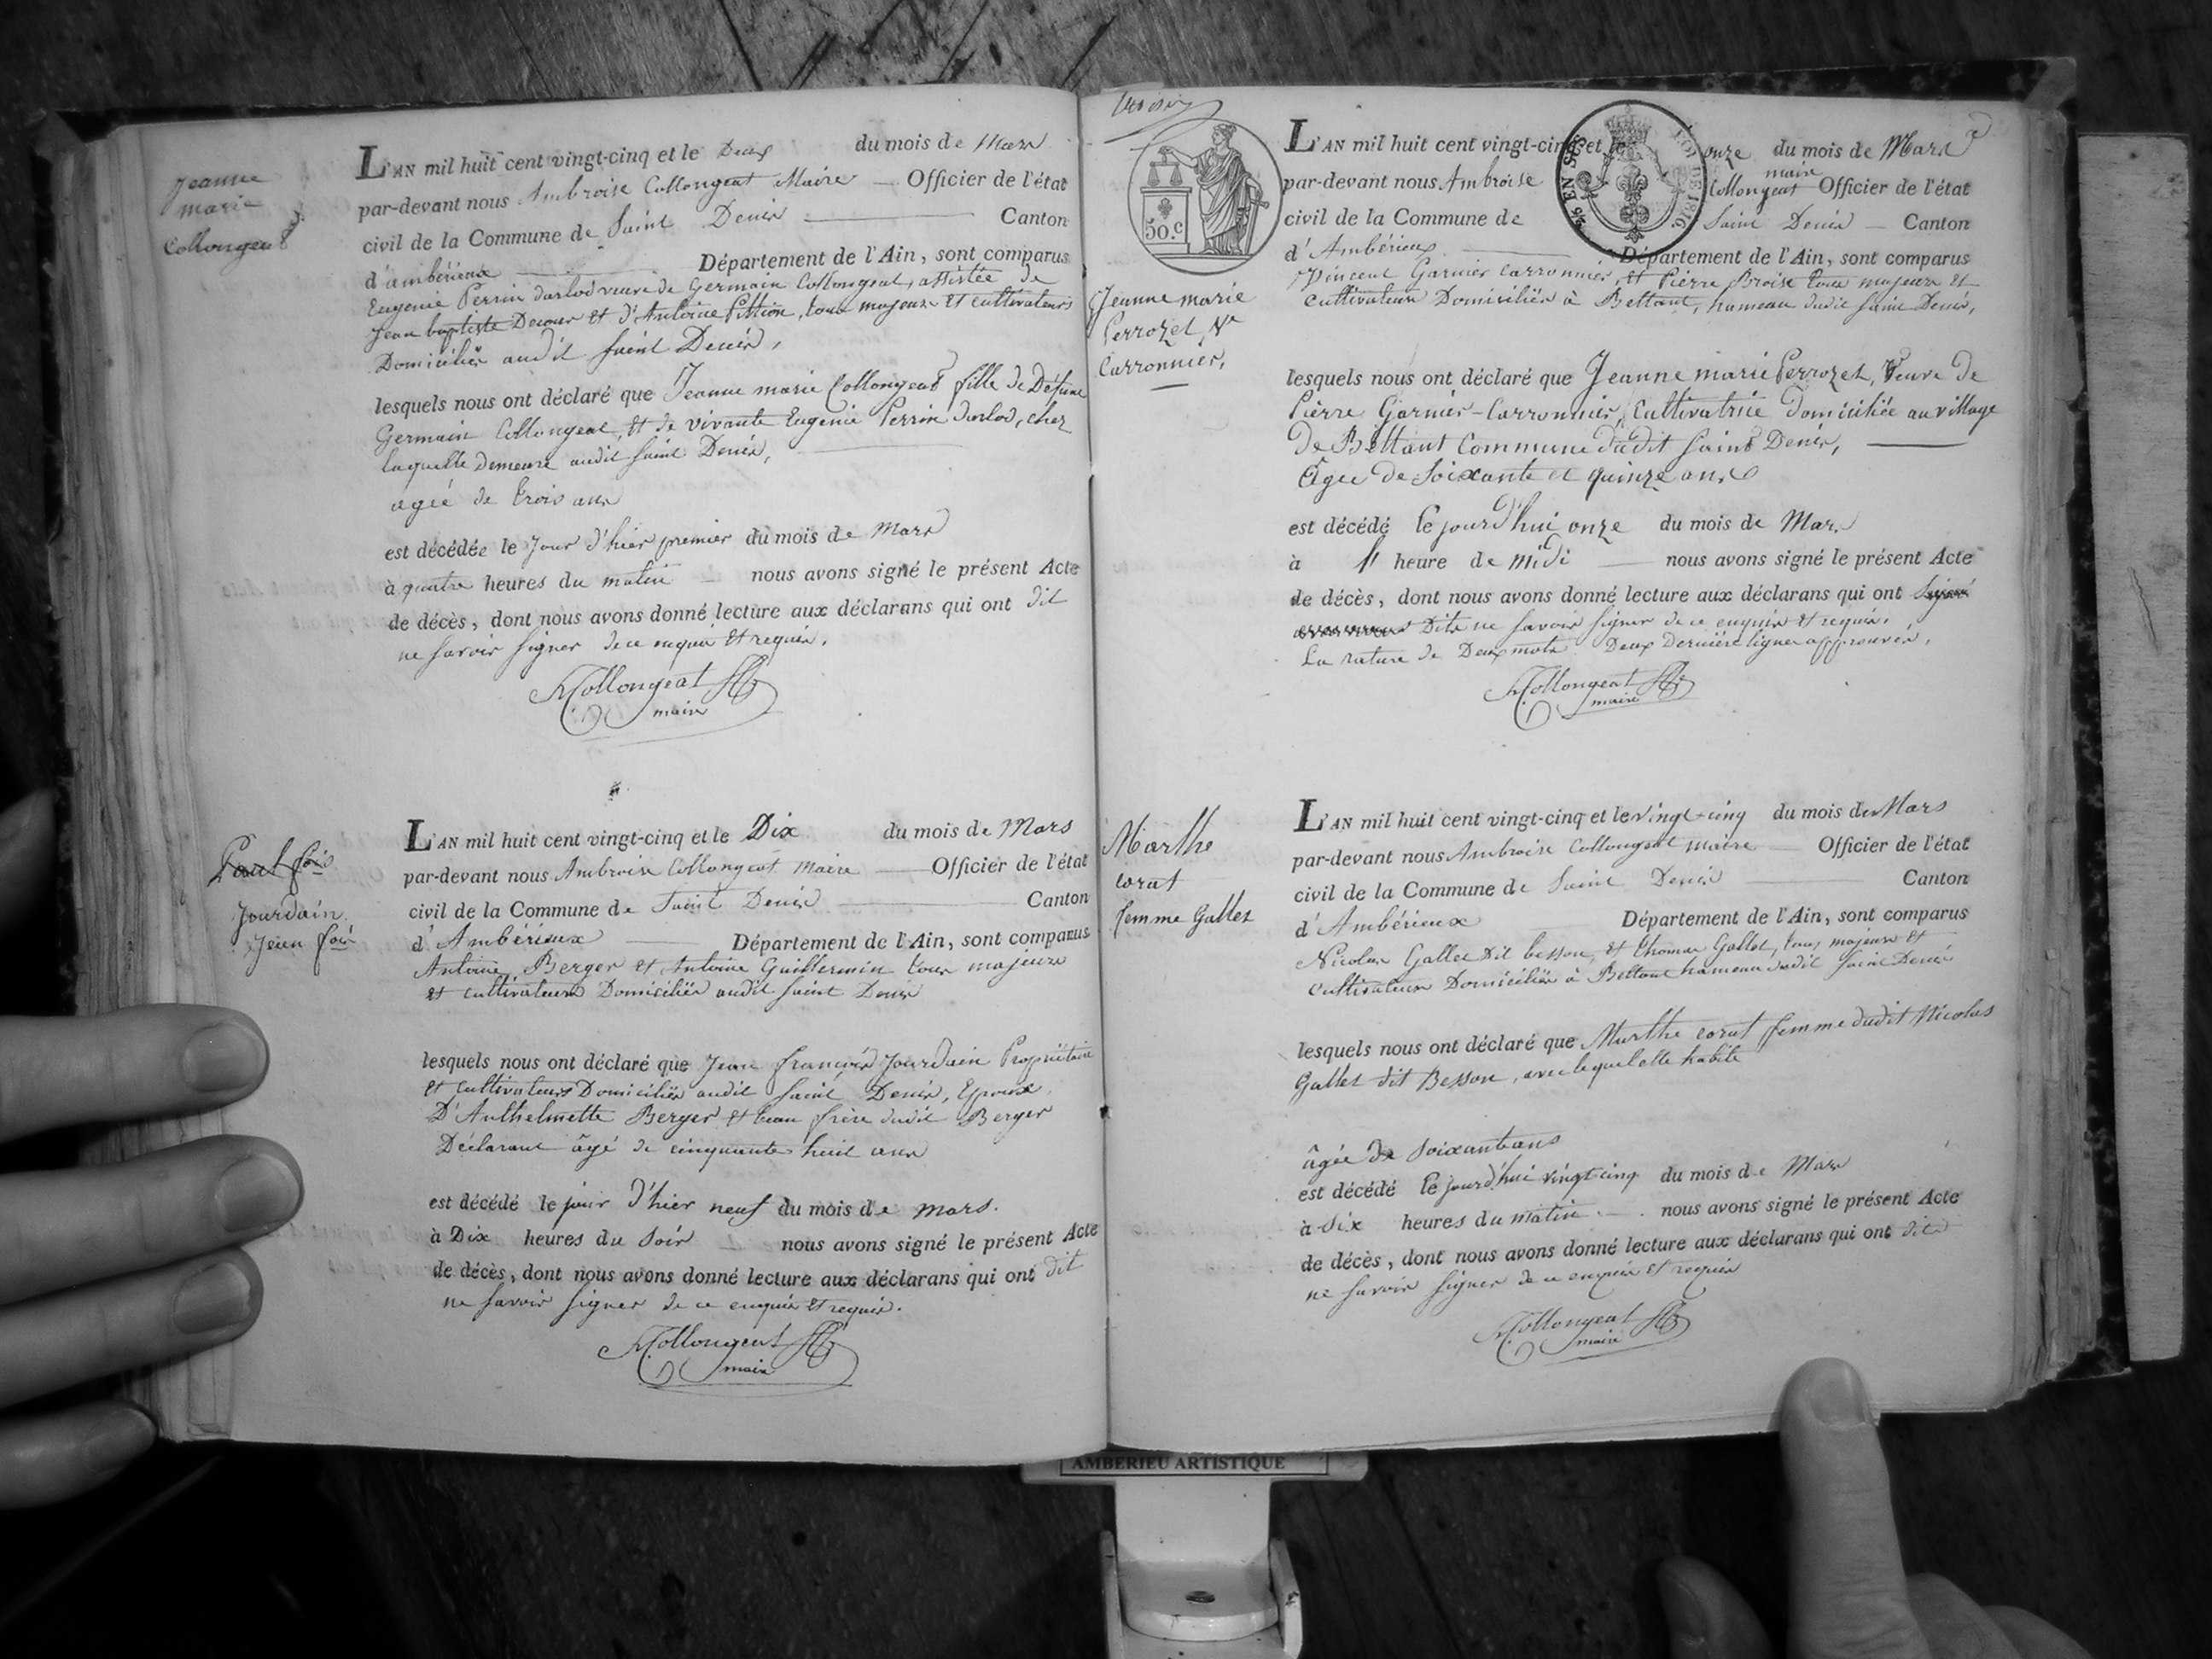 Jeanne
marie
Collongeat
L'AN mil huit cent vingt-cinq et le Deux du mois de Mars
par-devant nous Ambroise Collongeat Maire Officier de l'état
civil de la Commune de Saint Denis Canton
d'ambérieux Département de l'Ain, sont comparus
Eugenie Perrin darlod veuve de Germain Collongeat, assistée de
Jean baptiste Decour et d'Antoine Pittion, tous majeurs et cultivateurs
Domiciliés audit Saint Denis,
lesquels nous ont déclaré que Jeanne marie Collongeat fille de Défunt
Germain Collongeat, et de vivante Eugenie Perrin darlod, chez
laquelle demeure audit Saint Denis,
agée de trois ans
est décédée le jour d'hier premier du mois de Mars
à quatre heures du matin nous avons signé le présent Acte
de décès, dont nous avons donné lecture aux déclarans qui ont dit
ne savoir signer de ce enquis et requis.
Collongeat
maire
Paul fois
Jourdain
Jean fois
L'AN mil huit cent vingt-cinq et le Dix du mois de Mars
par-devant nous Ambroise Collongeat Maire Officier de l'état
civil de la Commune de Saint Denis Canton
d'Ambérieux Département de l'Ain, sont comparus
Antoine Berger et Antoine Guillermin tous majeurs
et cultivateurs Domiciliés audit Saint Denis
lesquels nous ont déclaré que Jean françois Jourdain Propriétaire
et cultivateurs Domiciliés audit Saint Denis, Epoux
D'Anthelmette Berger et beau frère dudit Berger
Déclarant âgé de cinquante huit ans
est décédé le jour d'hier neuf du mois de mars.
à Dix heures du soir nous avons signé le présent Acte
de décès, dont nous avons donné lecture aux déclarans qui ont dit
ne savoir signer de ce enquis et requis.
Collongeat
maire
50.c
L'AN mil huit cent vingt-cinq et le onze du mois de Mars
maire
par-devant nous Ambroise Collongeat Officier de l'état
civil de la Commune de Saint Denis Canton
d'Ambérieux Département de l'Ain, sont comparus
Vincent Garnier carronnier, et Pierre Broise tous majeurs et
cultivateurs Domiciliés à Bettant, hameau dudit Saint Denis,
Jeanne marie
Perrozet Ve
Carronnier,
lesquels nous ont déclaré que Jeanne marie Perrozet, Veuve de
Pierre Garnier-Carronnier, Cultivatrice domiciliée au village
de Bettant Commune dudit Saint Denis,
Agée de Soixante et quinze ans
est décédé le jourd'hui onze du mois de Mars
à 1 heure de midi nous avons signé le présent Acte
de décès, dont nous avons donné lecture aux déclarans qui ont signé
Dits ne savoir signer de ce enquis et requis.
La rature de Deux mots Deux dernière lignes approuvés.
Collongeat
maire
Marthe
corat
femme Gallet
L'AN mil huit cent vingt-cinq et le vingt-cinq du mois de Mars
par-devant nous Ambroise Collongeat maire Officier de l'état
civil de la Commune de Saint Denis Canton
d'Ambérieux Département de l'Ain, sont comparus
Nicolas Gallet dit besson, et thomas Gallet, tous majeurs et
cultivateurs Domiciliés à Bettant hameau dudit Saint Denis
lesquels nous ont déclaré que Marthe corat femme dudit Nicolas
Gallet dit Besson, avec lequel elle habite
âgée de soixante ans
est décédé le jourd'hui vingt cinq du mois de Mars
à six heures du matin nous avons signé le présent Acte
de décès, dont nous avons donné lecture aux déclarans qui ont dit
ne savoir signer de ce enquis et requis
Collongeat
maire
AMBERIEU ARTISTIQUE